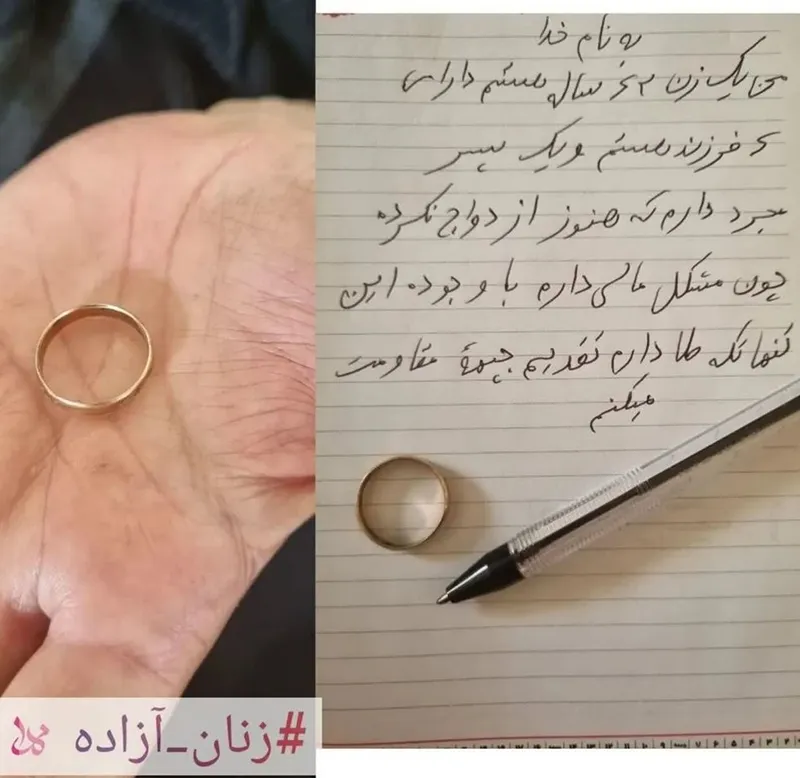 به نام خدا
من یک زن ساله هستم دارای
فرزند هستم و یک پسر
مجرد دارم که هنوز ازدواج نکرده
چون مشکل مالی داره با وجوده این
تنها تکه طلا دارم تقدیم جبههٔ مقاومت
میکنم
#زنان_آزاده